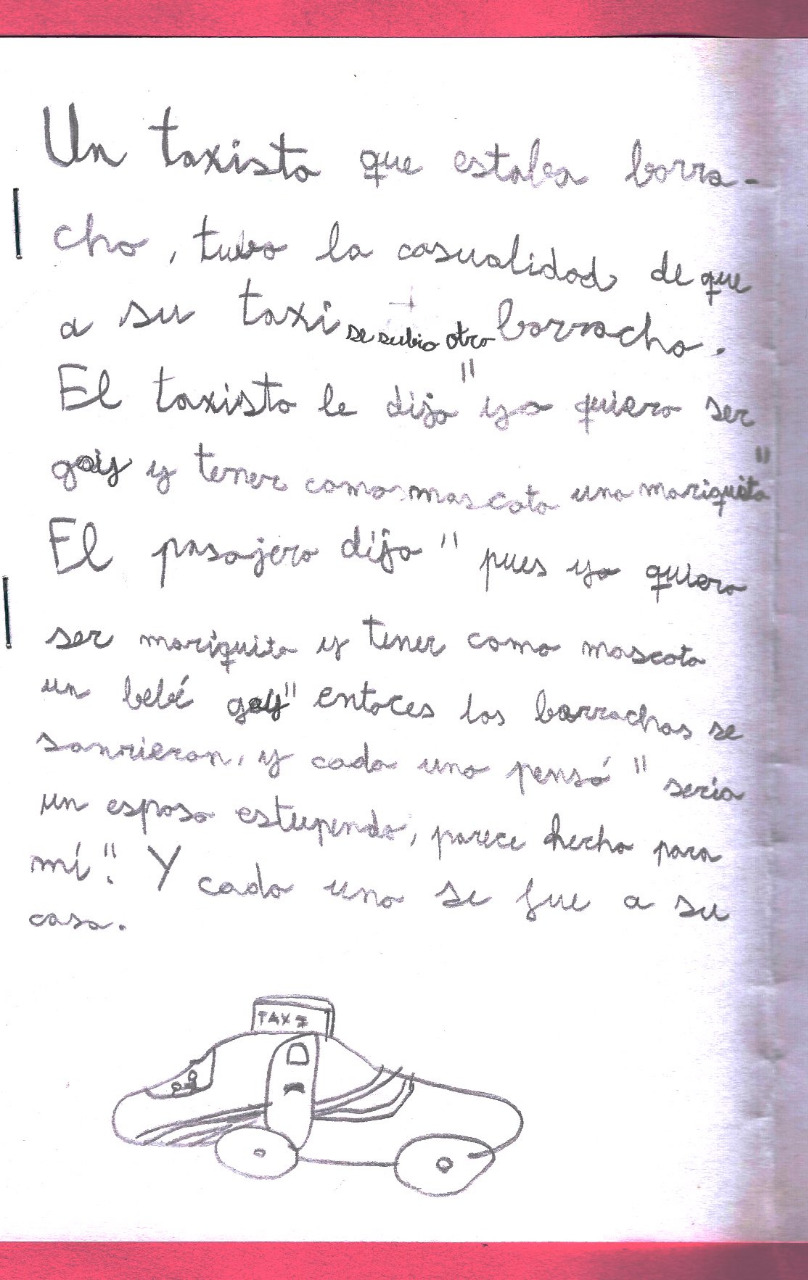 Un taxista que estaba borra-
cho, tubo la casualidad de que
a su taxi se subio otro borracho.
El taxista le dijo "yo quiero ser
gay y tener como mascota una mariquita"
El pasajero dijo " pues yo quiero
ser mariquita y tener como mascota
un bebé gay" entoces los borrachos se
sonrieron, y cada uno pensó " seria
un esposo estupendo, parece hecho para
mí". Y cada uno se fue a su
casa.
TAXI